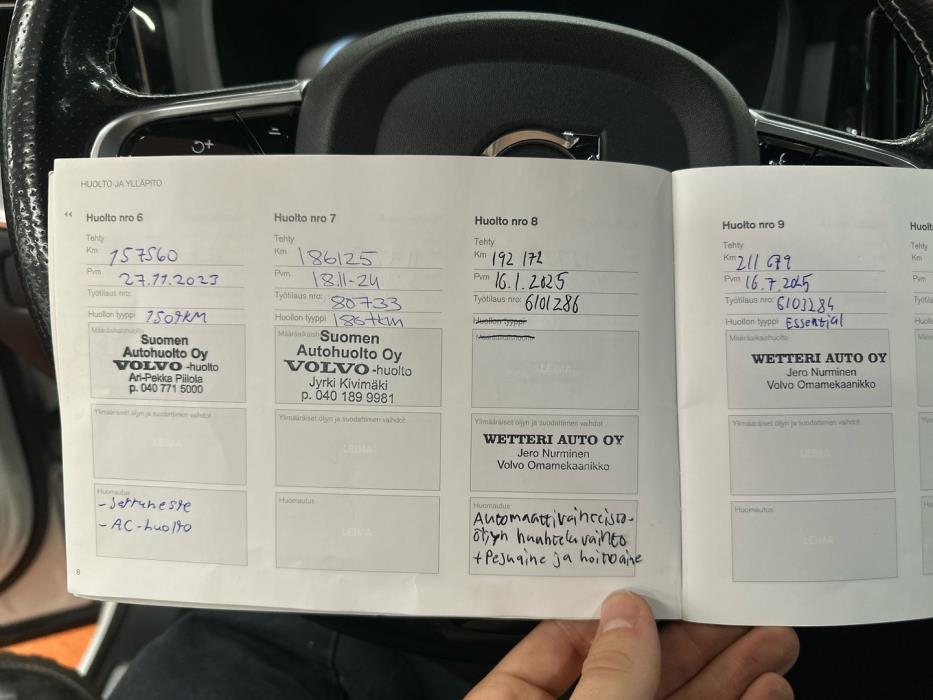 HUOLTO JA YLLÄPITO
Huolto nro 6
Tehty
Km 157560
Pvm 27.11.2023
Työtilaus nro:
Huollon tyyppi 150tkm
Määräaikaishuolto
Suomen
Autohuolto Oy
VOLVO-huolto
Ari-Pekka Piilola
p. 040 771 5000
Ylimääräiset öljyn ja suodattimen vaihdot
LEIMA
Huomautus
-Jarruneste
-AC-huolto
8
Huolto nro 7
Tehty
Km 186125
Pvm 18.11-24
Työtilaus nro: 80733
Huollon tyyppi 180tkm
Suomen
Autohuolto Oy
VOLVO-huolto
Jyrki Kivimäki
p. 040 189 9981
Ylimääräiset öljyn ja suodattimen vaihdot
LEIMA
Huomautus
LEIMA
Huolto nro 8
Tehty
Km 192 172
Pvm 16.1.2025
Työtilaus nro: 6101286
Huollon tyyppi
Määräaikaishuolto
LEIMA
Ylimääräiset öljyn ja suodattimen vaihdot
WETTERI AUTO OY
Jero Nurminen
Volvo Omamekaanikko
Huomautus
Automaattivaihteisto-
öljyn huuhteluvaihto
+Pesuaine ja hoitoaine
Huolto nro 9
Tehty
Km 211 679
Pvm 16.7.2025
Työtilaus nro: 6103284
Huollon tyyppi Essential
Määräaikaishuolto
WETTERI AUTO OY
Jero Nurminen
Volvo Omamekaanikko
Ylimääräiset öljyn ja suodattimen vaihdot
LEIMA
Huomautus
LEIMA
Huolt
Tehty
Km
Pvm